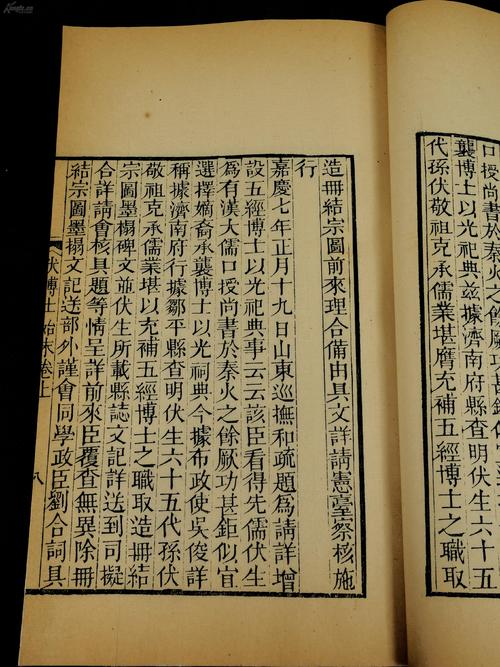 口授尚書於秦火之餘厥功甚鉅似宜
襲博士以光祀典茲據濟南府縣查明伏生
代孫伏敬祖克承儒業堪膺充補五經博士之職取
造冊結宗圖前來理合備由具文詳請憲臺察核施
行
嘉慶七年正月十九日山東巡撫和疏題為請詳增
設五經博士以光祀典事云云該臣看得先儒伏生
為有漢大儒口授尚書於秦火之餘厥功甚鉅似宜
選擇嫡裔承襲博士以光祠典今據布政使吳俊詳
稱據濟南府行據鄒平縣查明伏生六十五代孫伏
敬祖克承儒業堪以充補五經博士之職取造冊結
宗圖墨搨碑文並伏生所載縣誌文記詳送到司擬
合詳請會核具題等情呈詳前來臣覆查無異除冊
結宗圖墨搨文記送部外謹會同學政臣劉合詞具
伏博士始末卷上
八